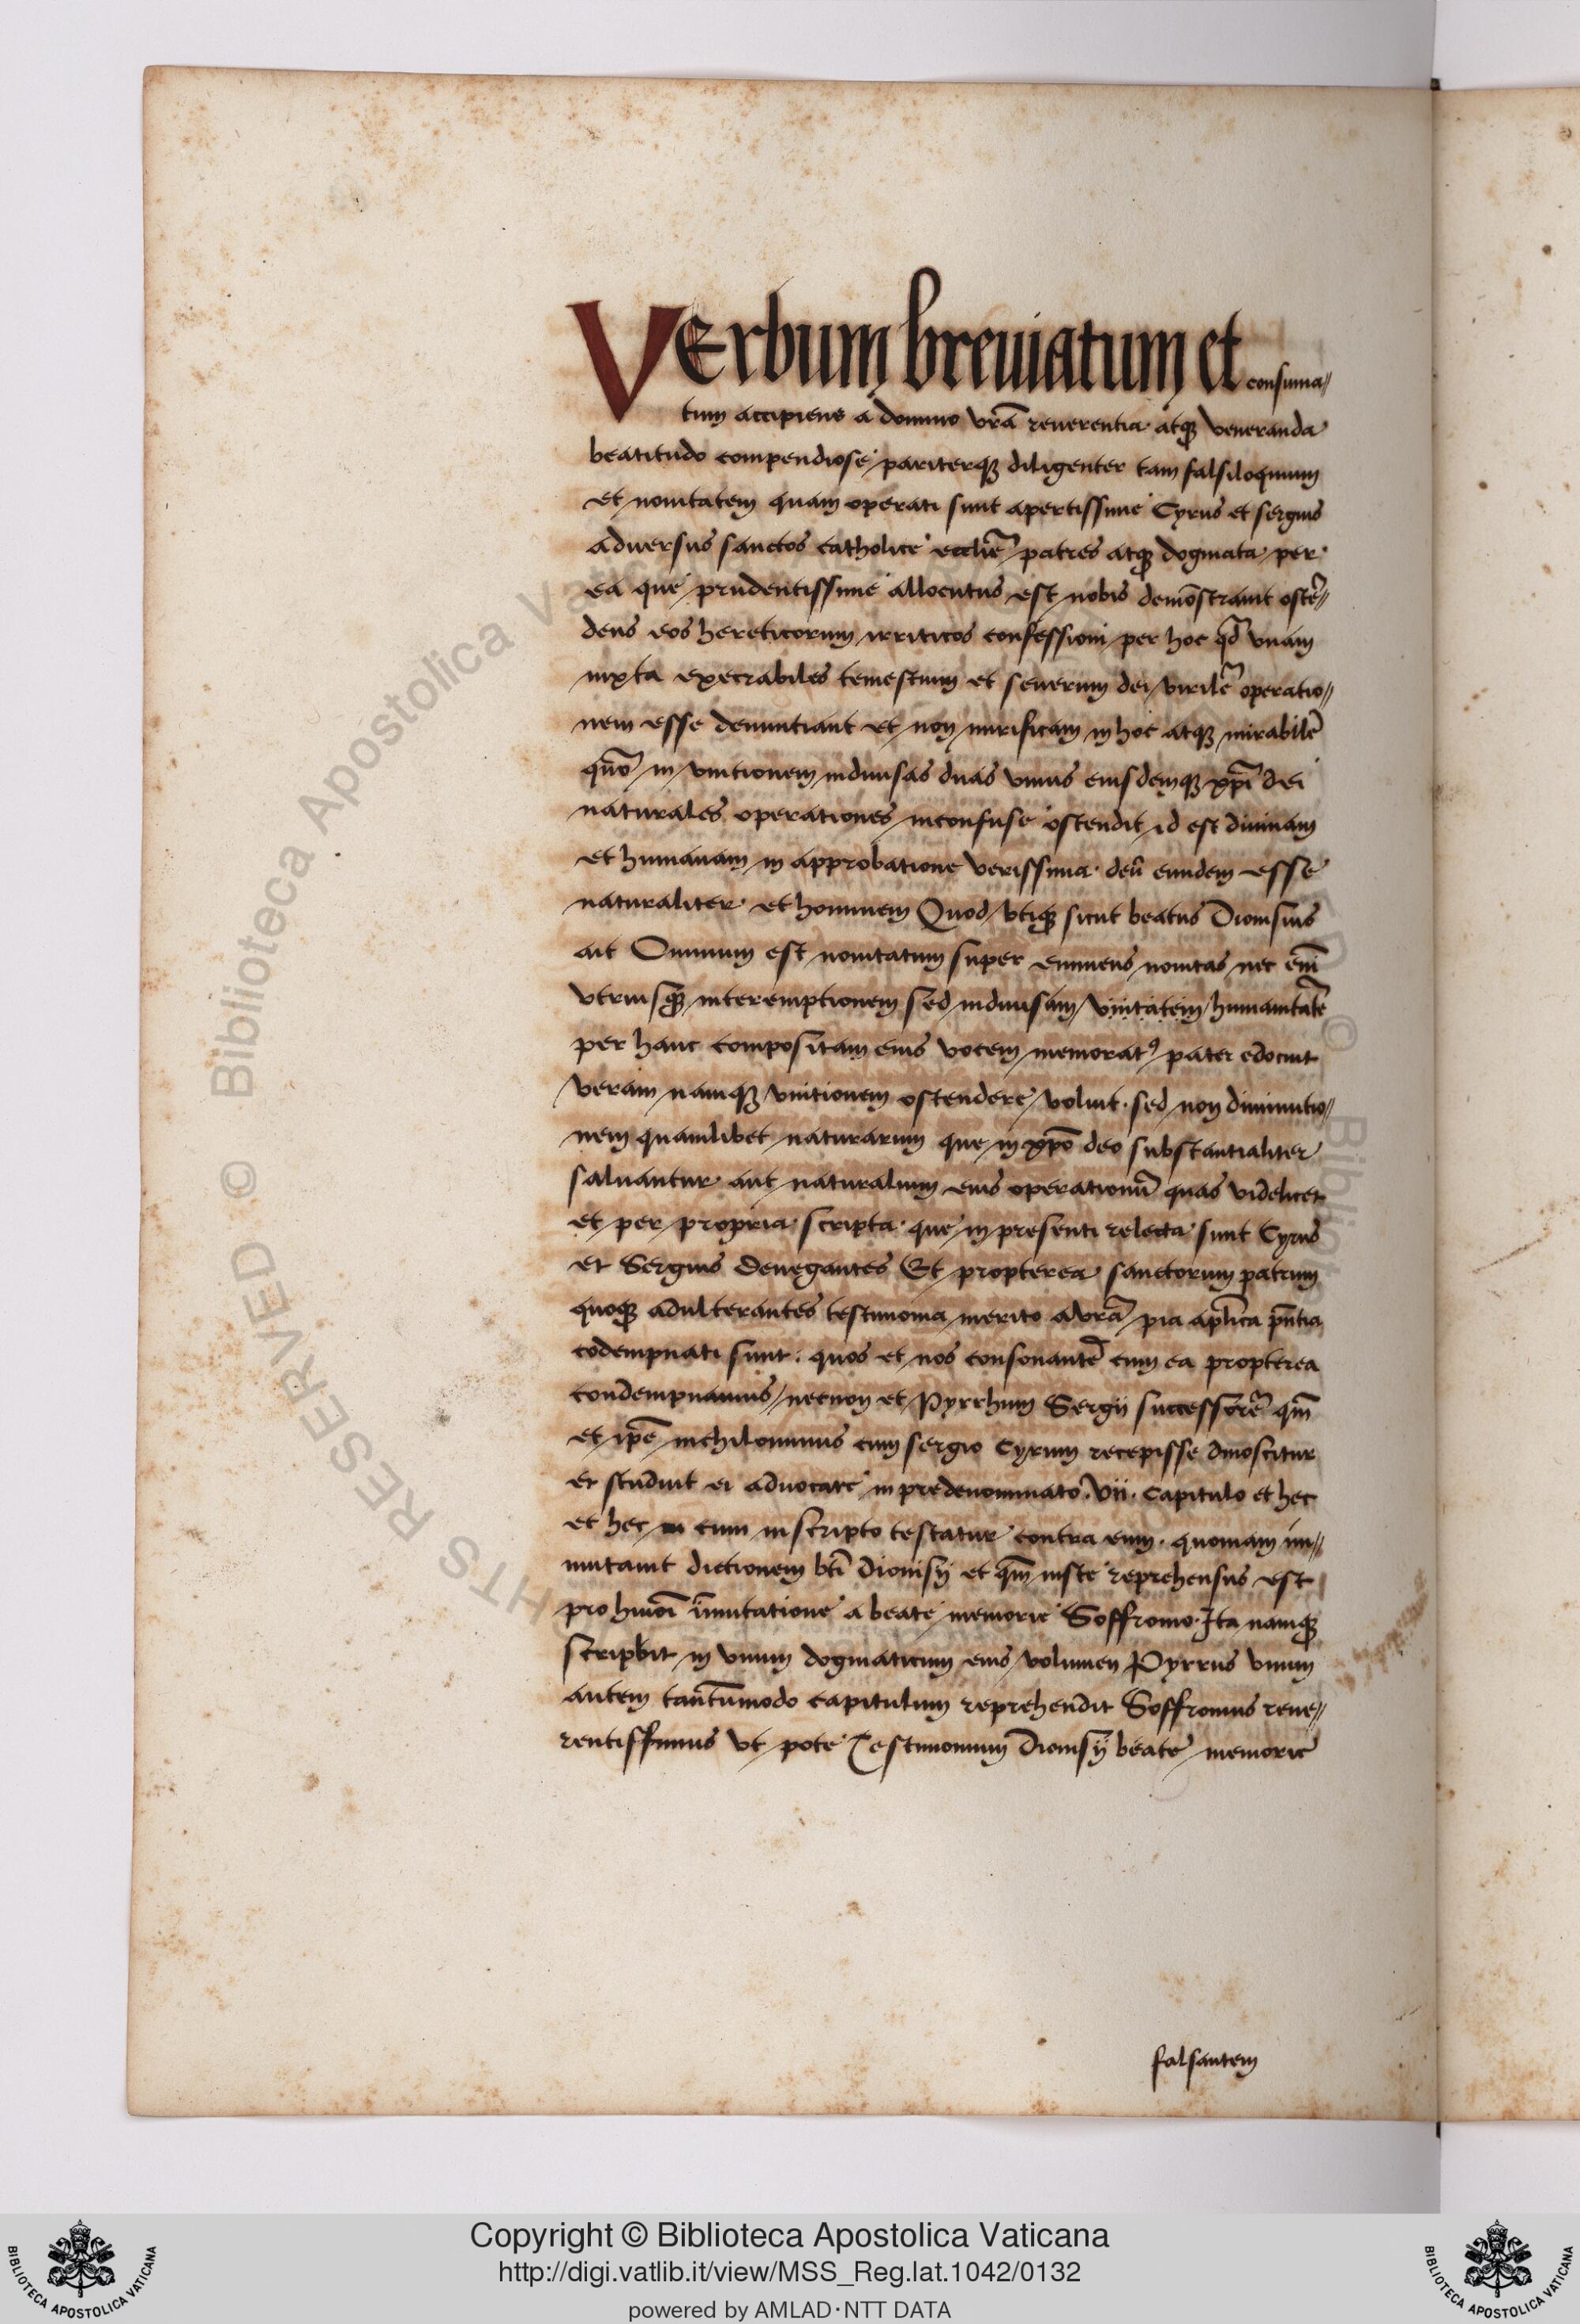 VErbum breuiatum et consuma//
tum accipiens a domino vrã reuerentia atqꝫ veneranda
beatitudo compendiose pariterqꝫ diligenter tam falsiloquium
et nouitatem quam operati sunt apertissime Cyrus et sergius
aduersus sanctos catholice ecclie᷒ patres atqꝫ dogmata per
ea que prudentissime allocutus est nobis demõstrauit ostẽ//
dens eos hereticorum irriticos confessioni per hoc qd̃ vnam
iuxta execrabiles temestium et seuerum dei virilẽ operatio//
nem esse denuntiant et non mirificam in hoc atqꝫ mirabilẽ
quõ in vnitionem indiuisas duas vnius eiusdemqꝫ xp̃i dei
naturales operationes inconfuse ostendit id est diuinam
et humanam in approbatione verissima deũ eundem esse
naturaliter et hominem Quod vtiqꝫ sicut beatus Dionisius
ait Omnium est nouitatum super eminens nouitas nec em̃
vtriusqꝫ interemptionem sed indiuisam vnitatem humanitatẽ
per hanc compositam eius vocem memoratꝰ pater edocuit
veram namqꝫ vnitionem ostendere voluit. sed non diminutio//
nem quamlibet naturarum que in xp̃o deo substantialiter
saluantur aut naturalium eius operationũ quas videlicet
et per propria scripta que in presenti relecta sunt Cyrus
et Sergius denegantes Et propterea sanctorum patrum
quoqꝫ adulterantes testimonia merito avrã pia aplica pñtia
codempnati sunt. quos et nos consonantẽ cum ea propterea
condempnamus/ necnon et Pyrrhum Sergij successorẽ qm̃
et ip̃e nichilominus cum sergio Cyrum recepisse dinoscitur
et studuit ei aduocare in predenominato .vii. capitulo et hec
et hec cum in scripto testatur contra eum. quoniam im//
mutauit dictionem bti Dionisij et qm̃ iuste reprehensus est
pro hmõi immutatione a beate memorie Soffronio. Ita namqꝫ
scripbit in vnum dogmaticum eius volumen Pyrrus vnum
autem tantummodo capitulum reprehendit Soffronius reue//
rentissimus vt pote Testimonium Dionisij beate memorie
falsantem
Copyright © Biblioteca Apostolica Vaticana
http://digi.vatlib.it/view/MSS_Reg.lat.1042/0132
powered by AMLAD·NTT DATA